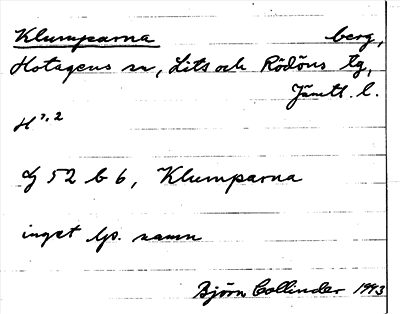 Klumparna berg,
Hotagens sn, Lits och Rödöns tg,
Jämtl. l.
H 7,2
dj 52 b 6, Klumparna
inget lp. namn
Björn Collinder 1943